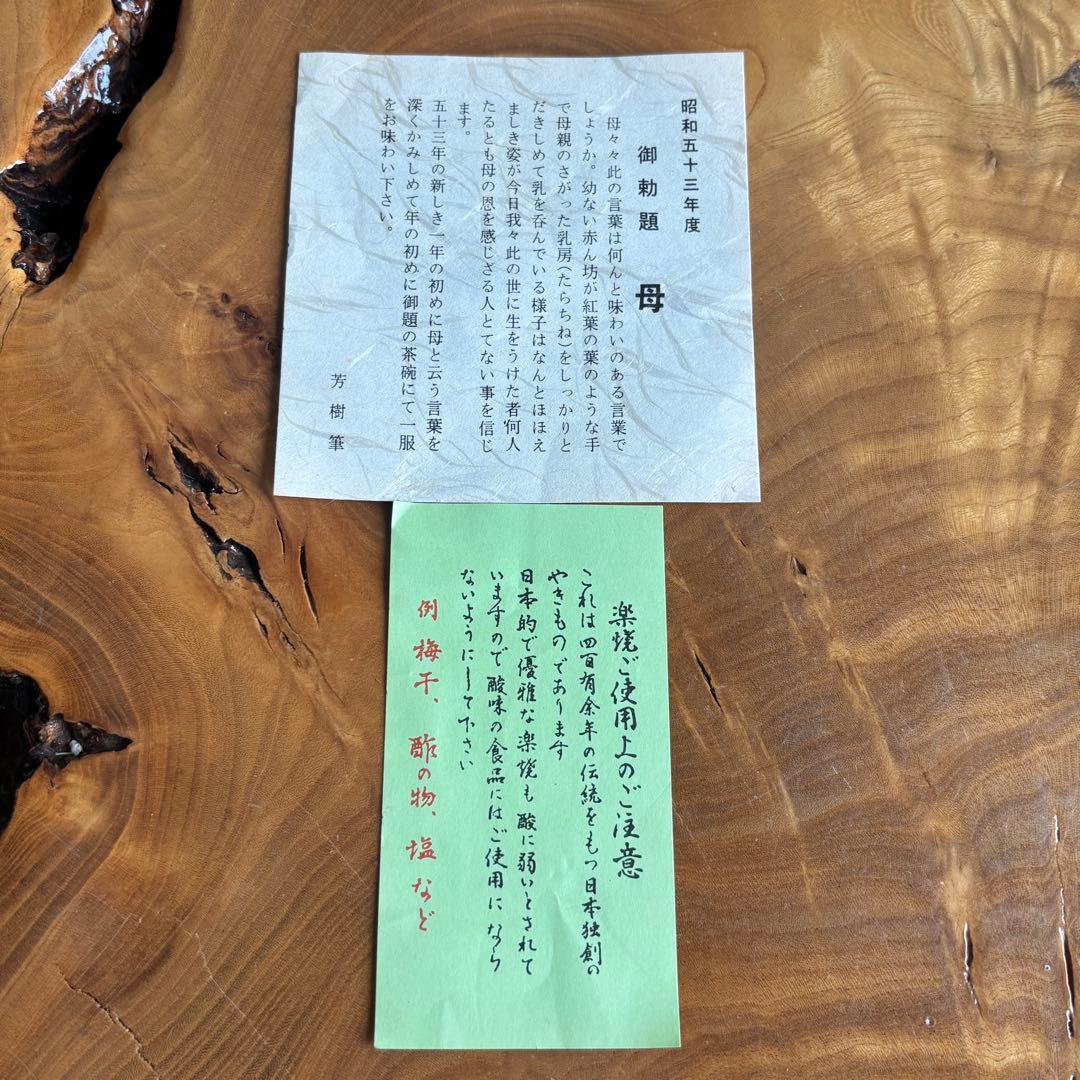 昭和五十三年度
御勅題　母
母々々此の言葉は何んと味わいのある言業で
しょうか。幼ない赤ん坊が紅葉の葉のような手
で母親のさがった乳房（たらちね）をしっかりと
だきしめて乳を呑んでいる様子はなんとほほえ
ましき姿が今日我々此の世に生をうけた者何人
たるとも母の恩を感じざる人とてない事を信じ
ます。
五十三年の新しき一年の初めに母と云う言葉を
深くかみしめて年の初めに御題の茶碗にて一服
をお味わい下さい。
芳樹筆
楽焼ご使用上のご注意
これは四百有余年の伝統をもつ日本独創の
やきものであります
日本的で優雅な楽焼も酸に弱いとされて
いますので酸味の食品にはご使用になら
ないようにして下さい
例 梅干、酢の物、塩など